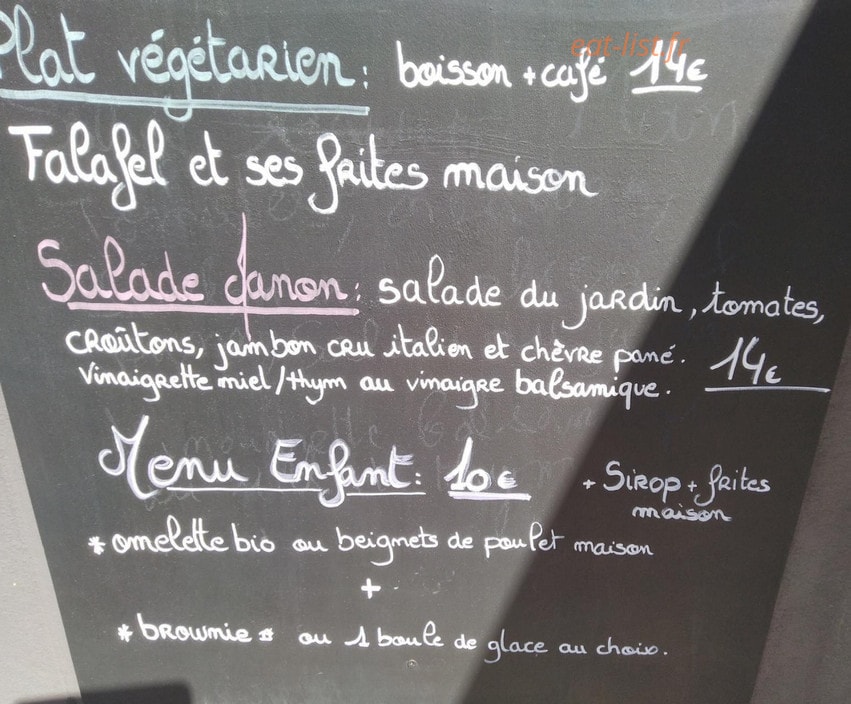 eat-list.fr
Plat végétarien: boisson + café 14€
Falafel et ses frites maison
Salade Janon: salade du jardin, tomates,
croûtons, jambon cru italien et chèvre pané. 14€
vinaigrette miel/thym au vinaigre balsamique.
Menu Enfant: 10€ + Sirop + frites
maison
* omelette bio ou beignets de poulet maison
+
* brownie * ou 1 boule de glace au choix.